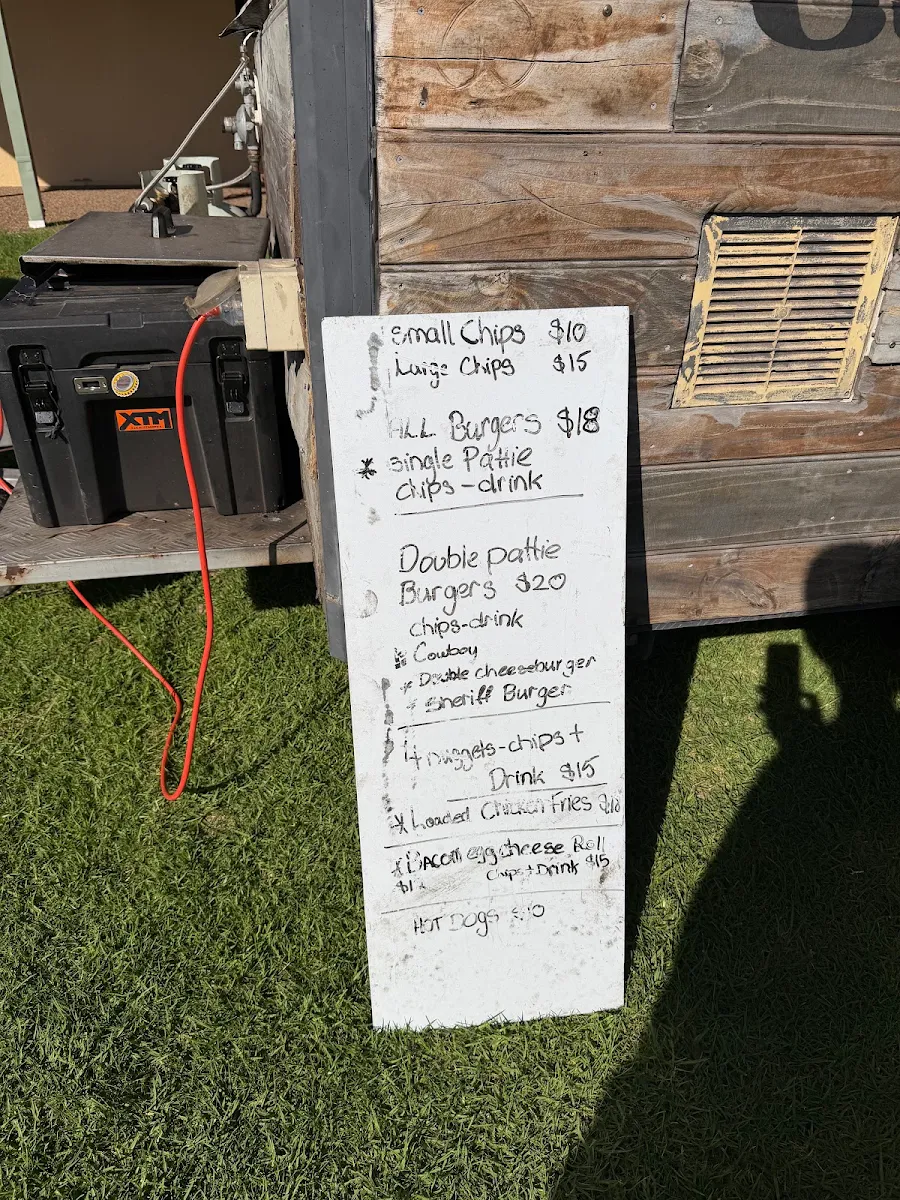 Small Chips $10
Large Chips $15
ALL Burgers $18
* single Pattie
chips-drink
Double pattie
Burgers $20
chips-drink
Cowboy
* Double cheeseburger
* Sheriff Burger
4 nuggets-chips+
Drink $15
* Loaded Chicken Fries
* BACON egg cheese Roll
Chips+Drink $15
HOT DOGS $10
XTM